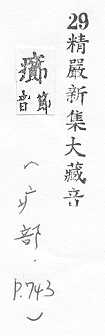 29精嚴新集大藏音
癤音節
(疒部.
P.743)